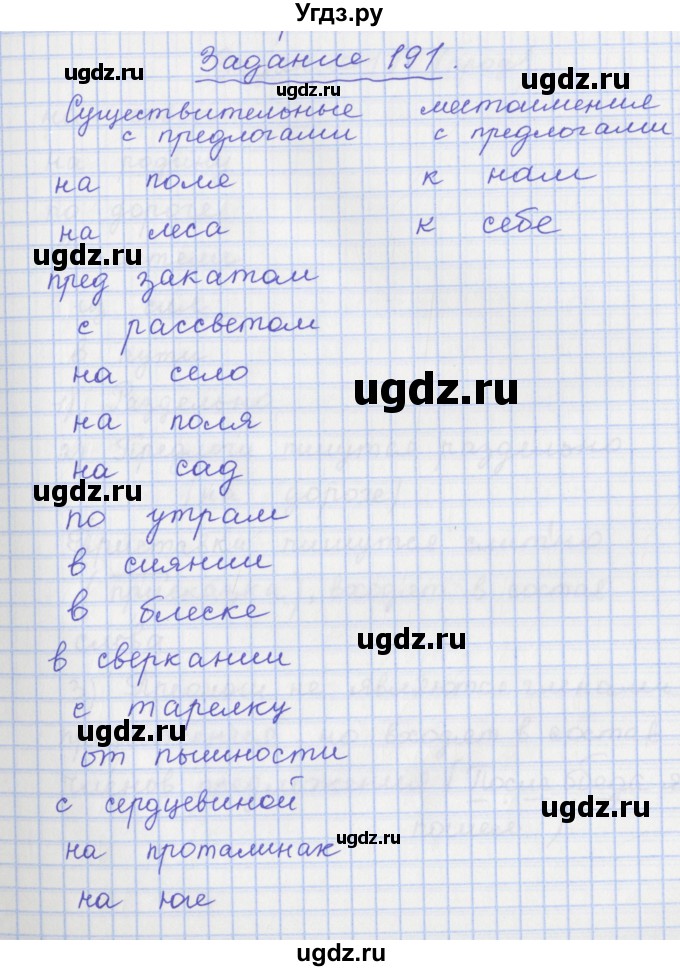 Угдз.ру
Задание 191.
Существительные с предлогами
местоимение с предлогами
на поля к нам
на леса к себе
пред закатом
с рассветом
на село
на поля
на сад
по утрам
в сиянии
в блеске
в сверкании
с тарелку
от пышности
с сердцевиной
на проталинах
на юге
ugdz.ru
ugdz.ru
ugdz.ru
ugdz.ru
ugdz.ru
ugdz.ru
ugdz.ru
ugdz.ru
ugdz.ru
ugdz.ru
ugdz.ru